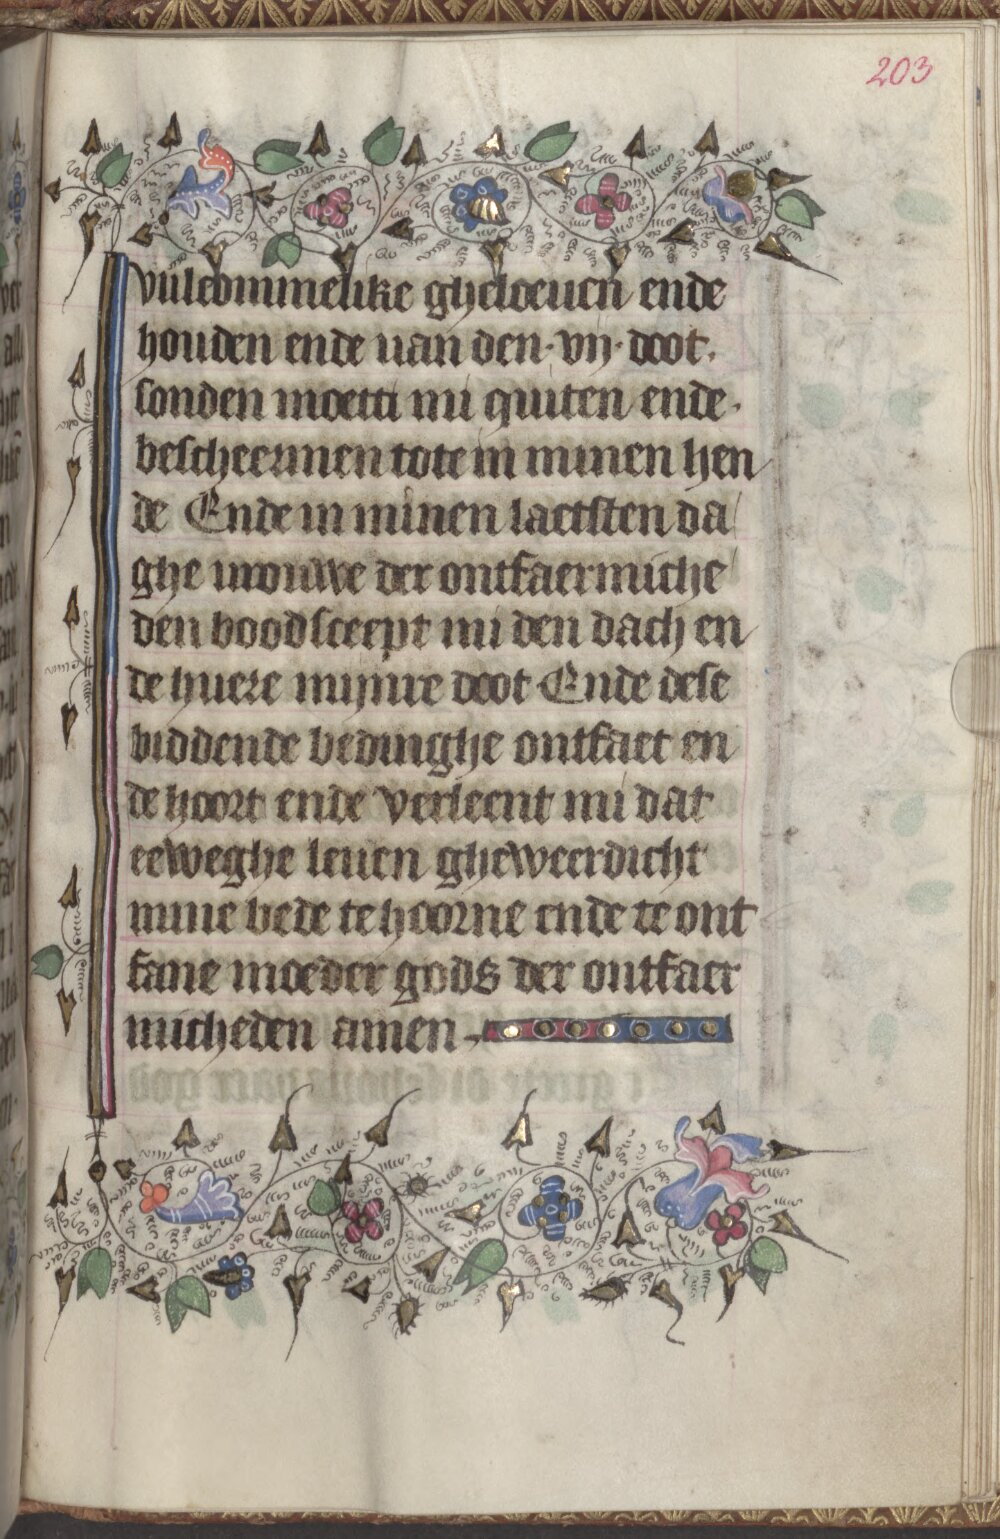 203
vulcommelike gheloeuen ende
houden ende uan den · vij · doot ·
sonden moetti mi quiten ende ·
bescheermen tote in minen hen
de Ende in minen laetsten da
ghe urouwe der ontfaermiche
den boodsceept mi den dach en
de huere mijnre doot Ende dese
biddende bedinghe ontfaet en
de hoort ende verleent mi dat
eeweghe leuen gheweerdicht
mine bede te hoorne ende te ont
fane moeder gods der ontfaer
micheden amen